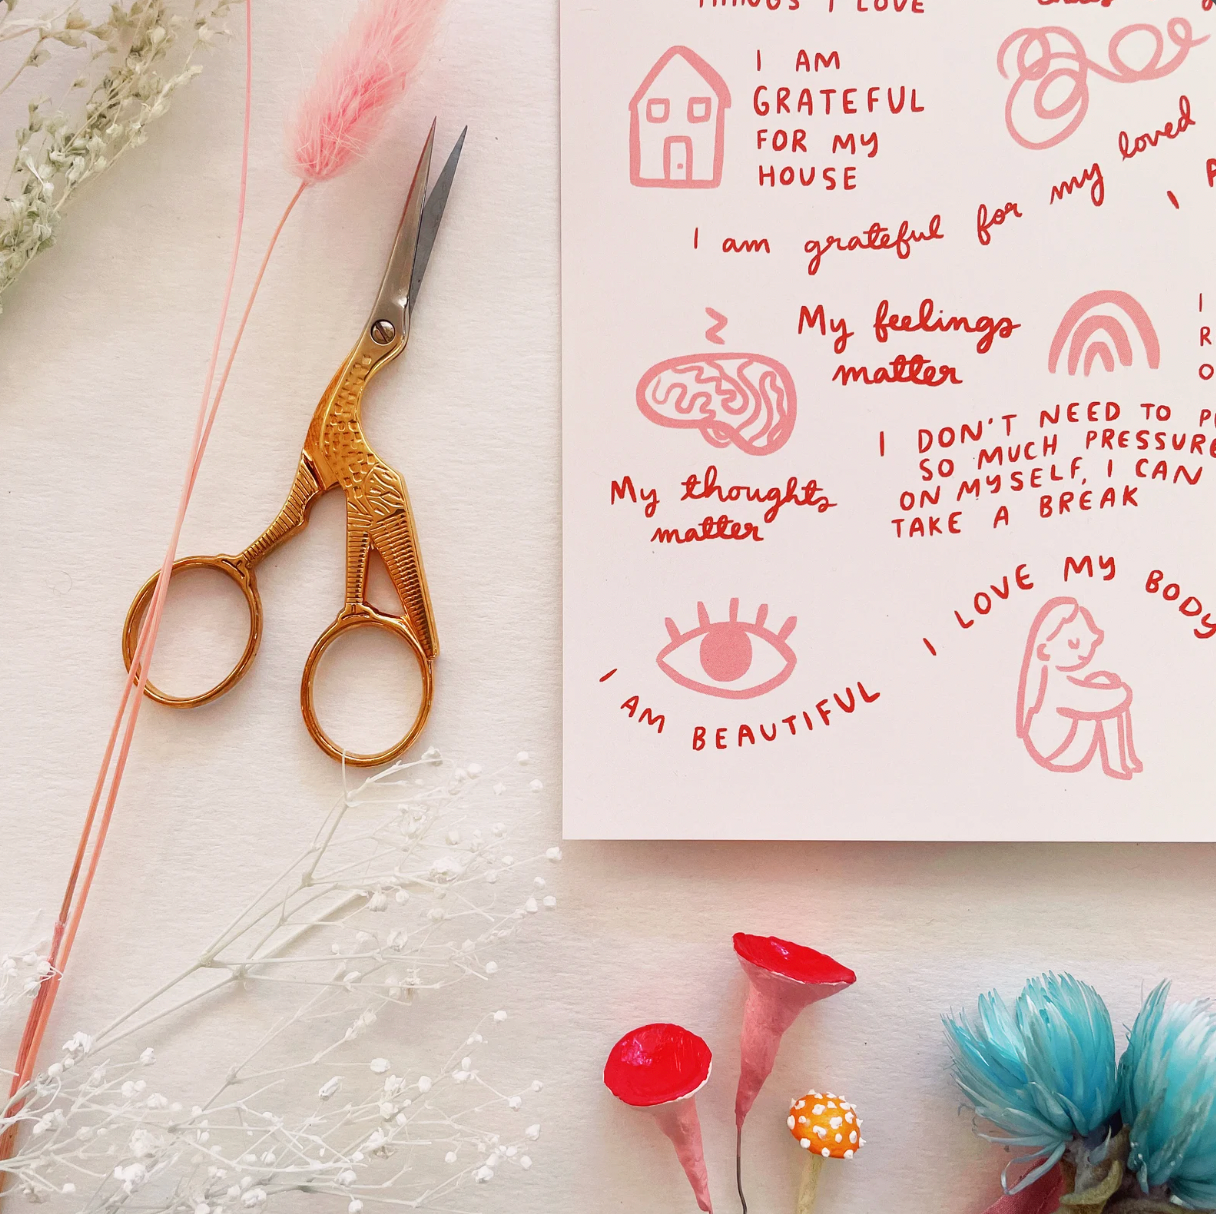 THINGS I LOVE
I AM
GRATEFUL
FOR MY
HOUSE
I am grateful for my loved
My feelings
matter
I
R
O
My thoughts
matter
I DON'T NEED TO
SO MUCH PRESSURE
ON MYSELF, I CAN
TAKE A BREAK
I AM BEAUTIFUL
I LOVE MY BODY